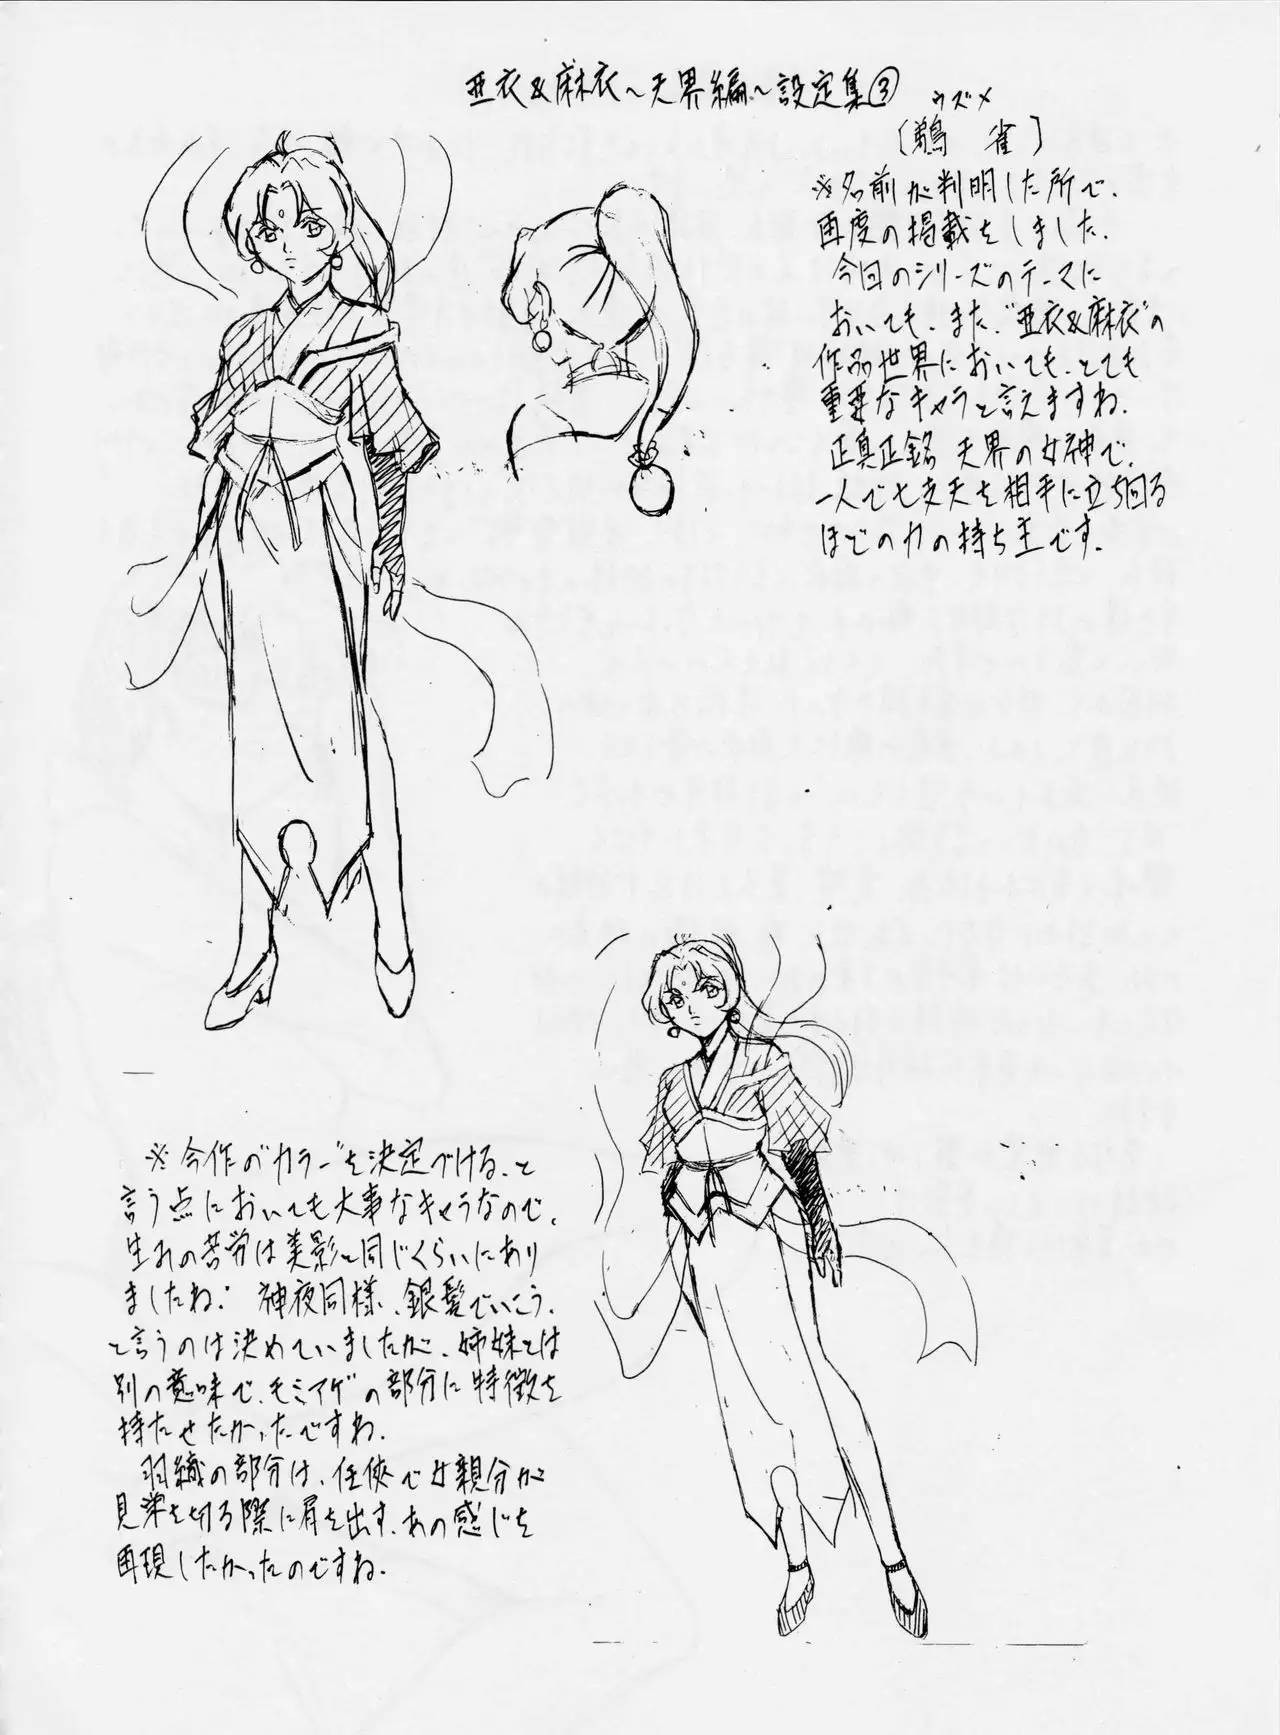 亜衣&麻衣～天界編～設定集③
ウズメ
〔鵜 雀〕
※名前が判明した所で、
再度の掲載をしました。
今回のシリーズのテーマに
おいても、また、“亜衣&麻衣”の
作品世界においても、とても
重要なキャラと言えますね。
正真正銘 天界の女神で、
一人で七支天を相手に立ち回る
ほどの力の持ち主です。
※今作の“カラー”を決定づける、と
言う点においても大事なキャラなので、
生みの苦労は美影と同じくらいにあり
ましたね。 神夜同様、銀髪でいこう、
と言うのは決めていましたが、姉妹とは
別の意味で、モミアゲの部分に特徴を
持たせたかったですね。
羽織の部分は、任侠で女親分が
見栄を切る際に肩を出す、あの感じを
再現したかったのですね。